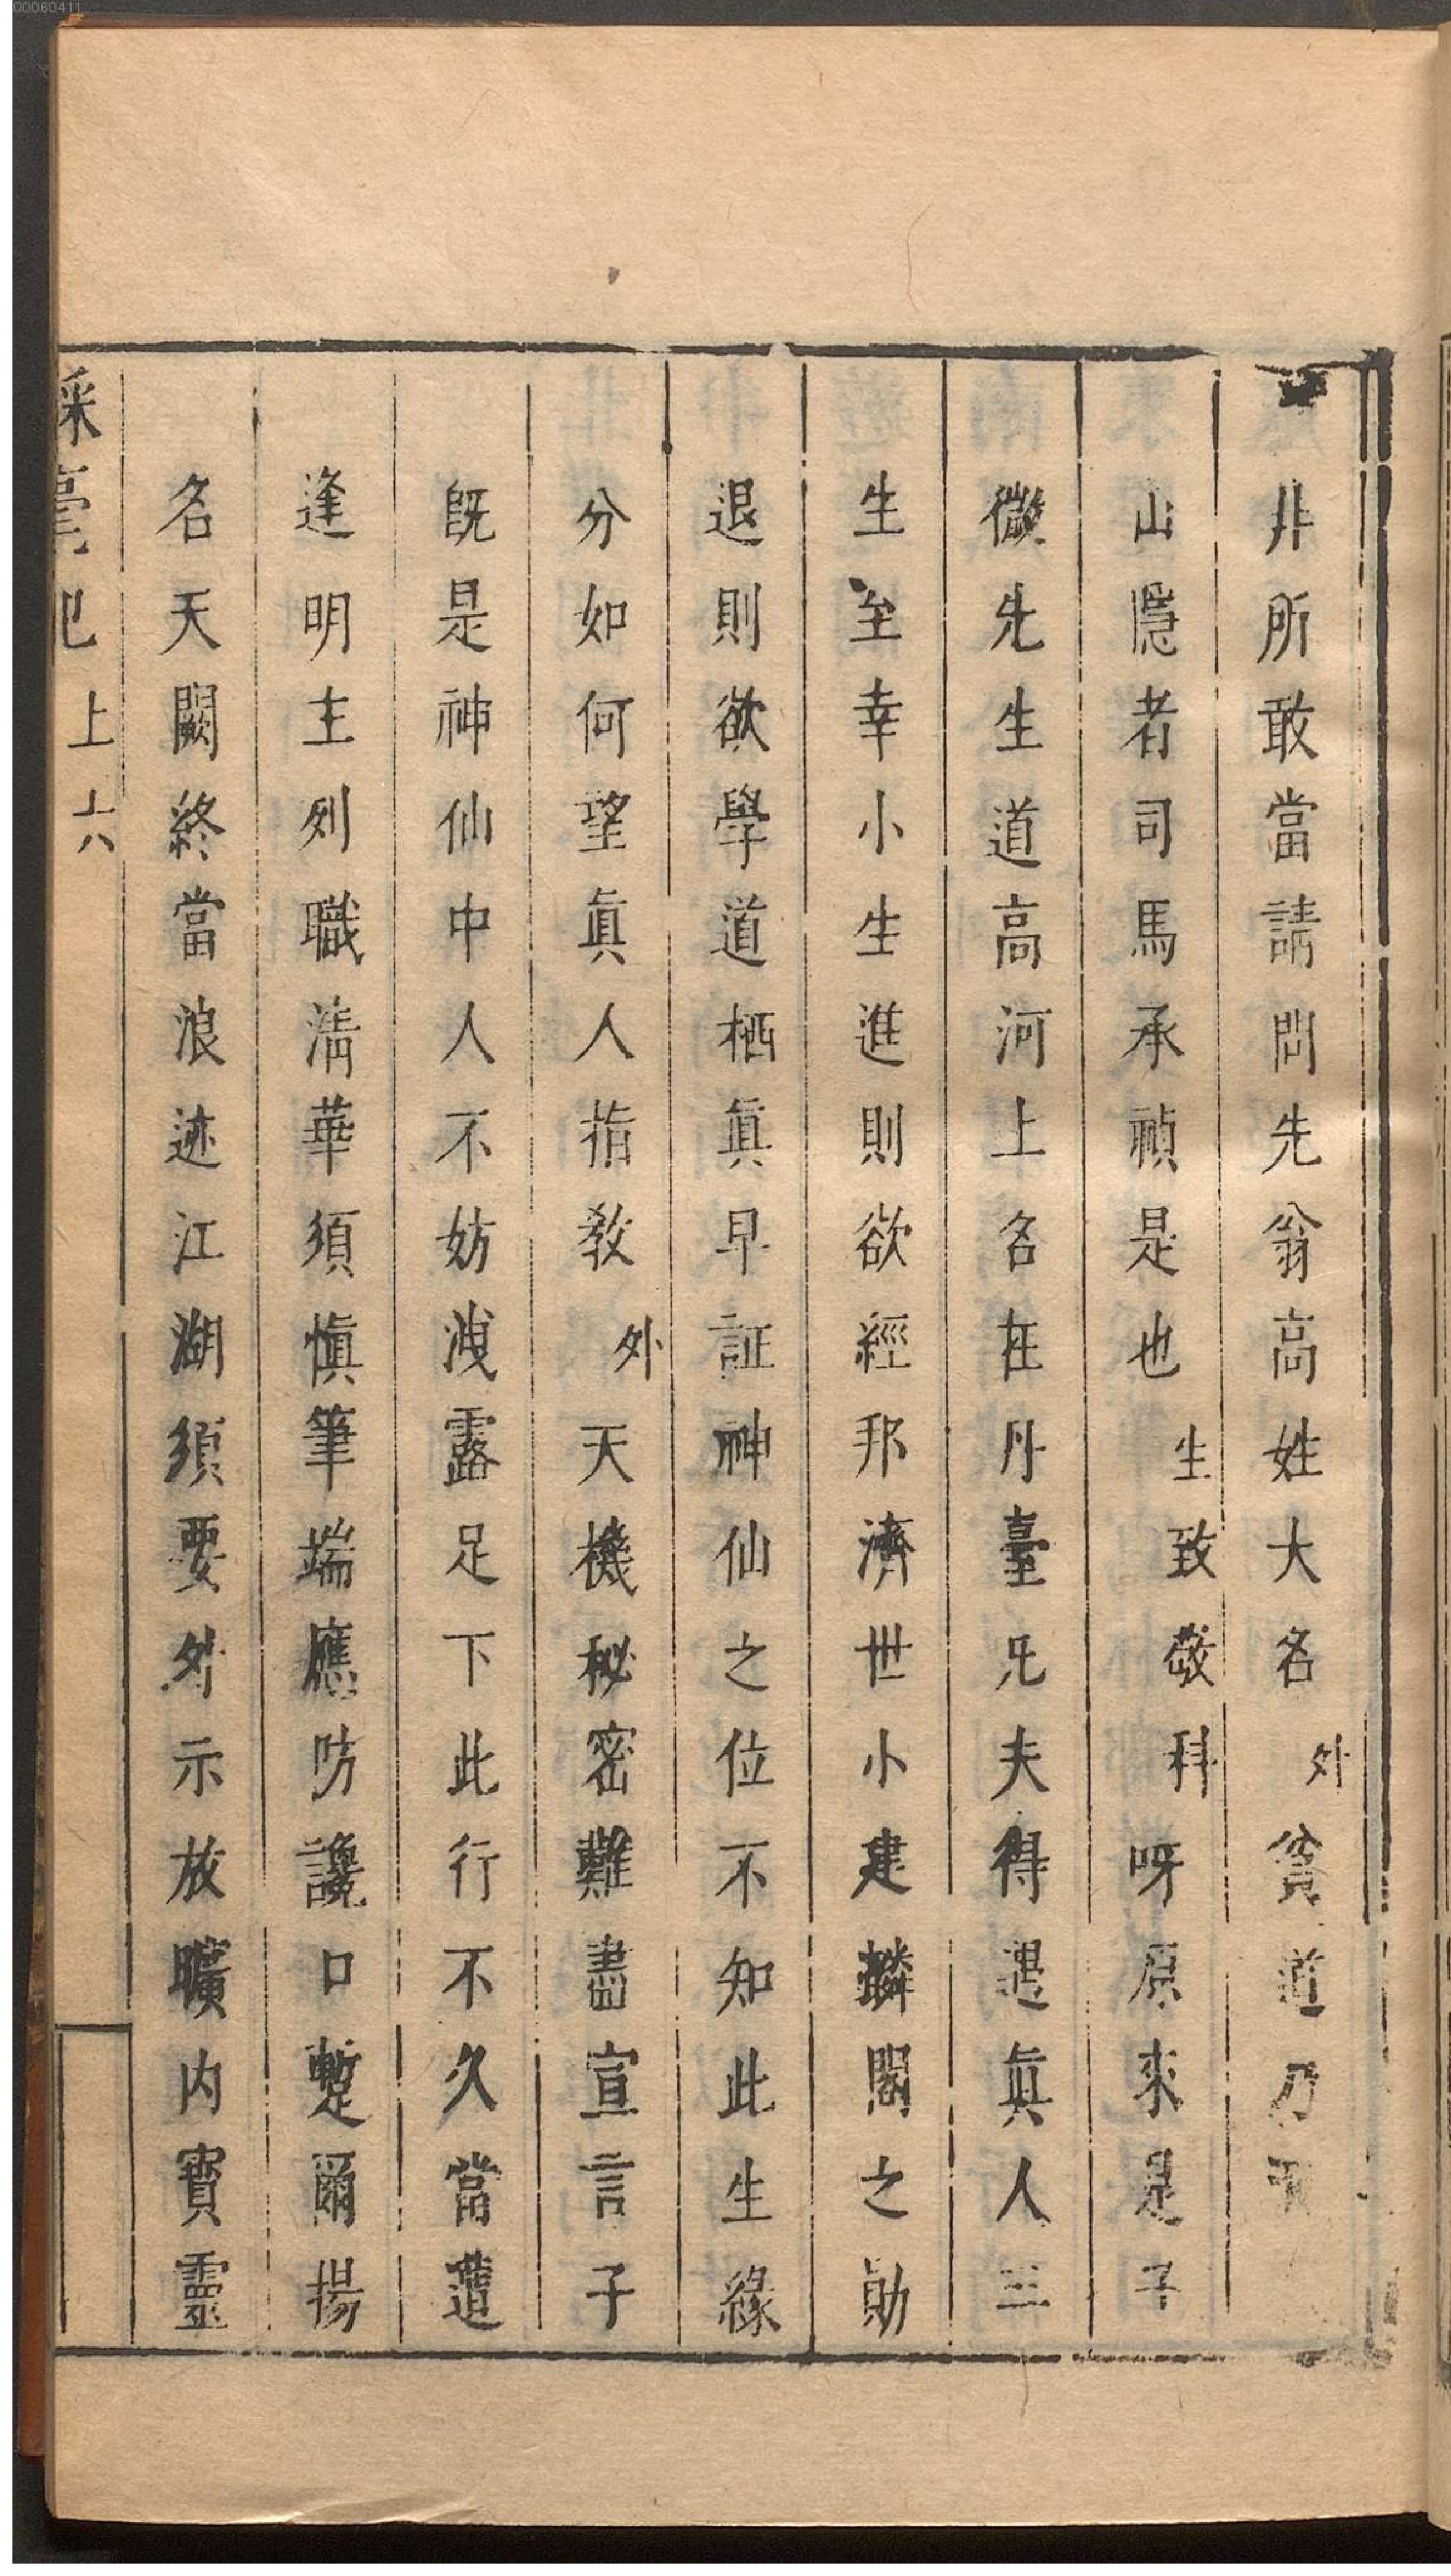 00060411
非所敢當請問先翁高姓大名外貧道乃
山隱者司馬承禎是也生致敬科呀原來是子
微先生道高河上名在丹臺兄夫得遇眞人三
生至幸小生進則欲經邦濟世小建麟閣之勛
退則欲學道栖眞早証神仙之位不知此生緣
分如何望眞人指教外天機秘密難盡宣言子
旣是神仙中人不妨洩露足下此行不久當遭
逢明主列職淸華須愼筆端應防讒口蹔爾揚
名天闕終當浪迹江湖須要外示放曠內寶靈
綵毫記上六